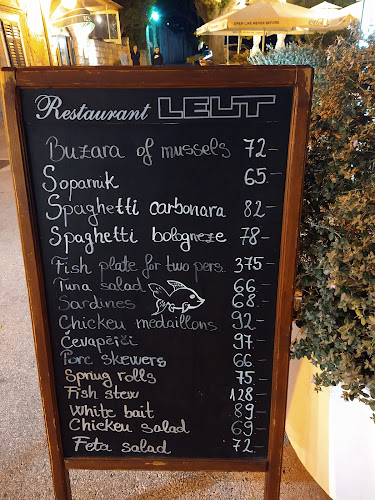 OPEN LIKE NEVER BEFORE
Restaurant LEUT
Buzara of mussels 72-
Soparnik 65-
Spaghetti carbonara 82-
Spaghetti bologneze 78-
Fish plate for two pers. 375-
Tuna salad 66-
Sardines 68-
Chicken medaillons 92-
Ćevapčiči 97-
Porc skewers 66-
Spring rolls 75-
Fish stew 128-
White bait 89-
Chicken salad 69-
Feta salad 72-